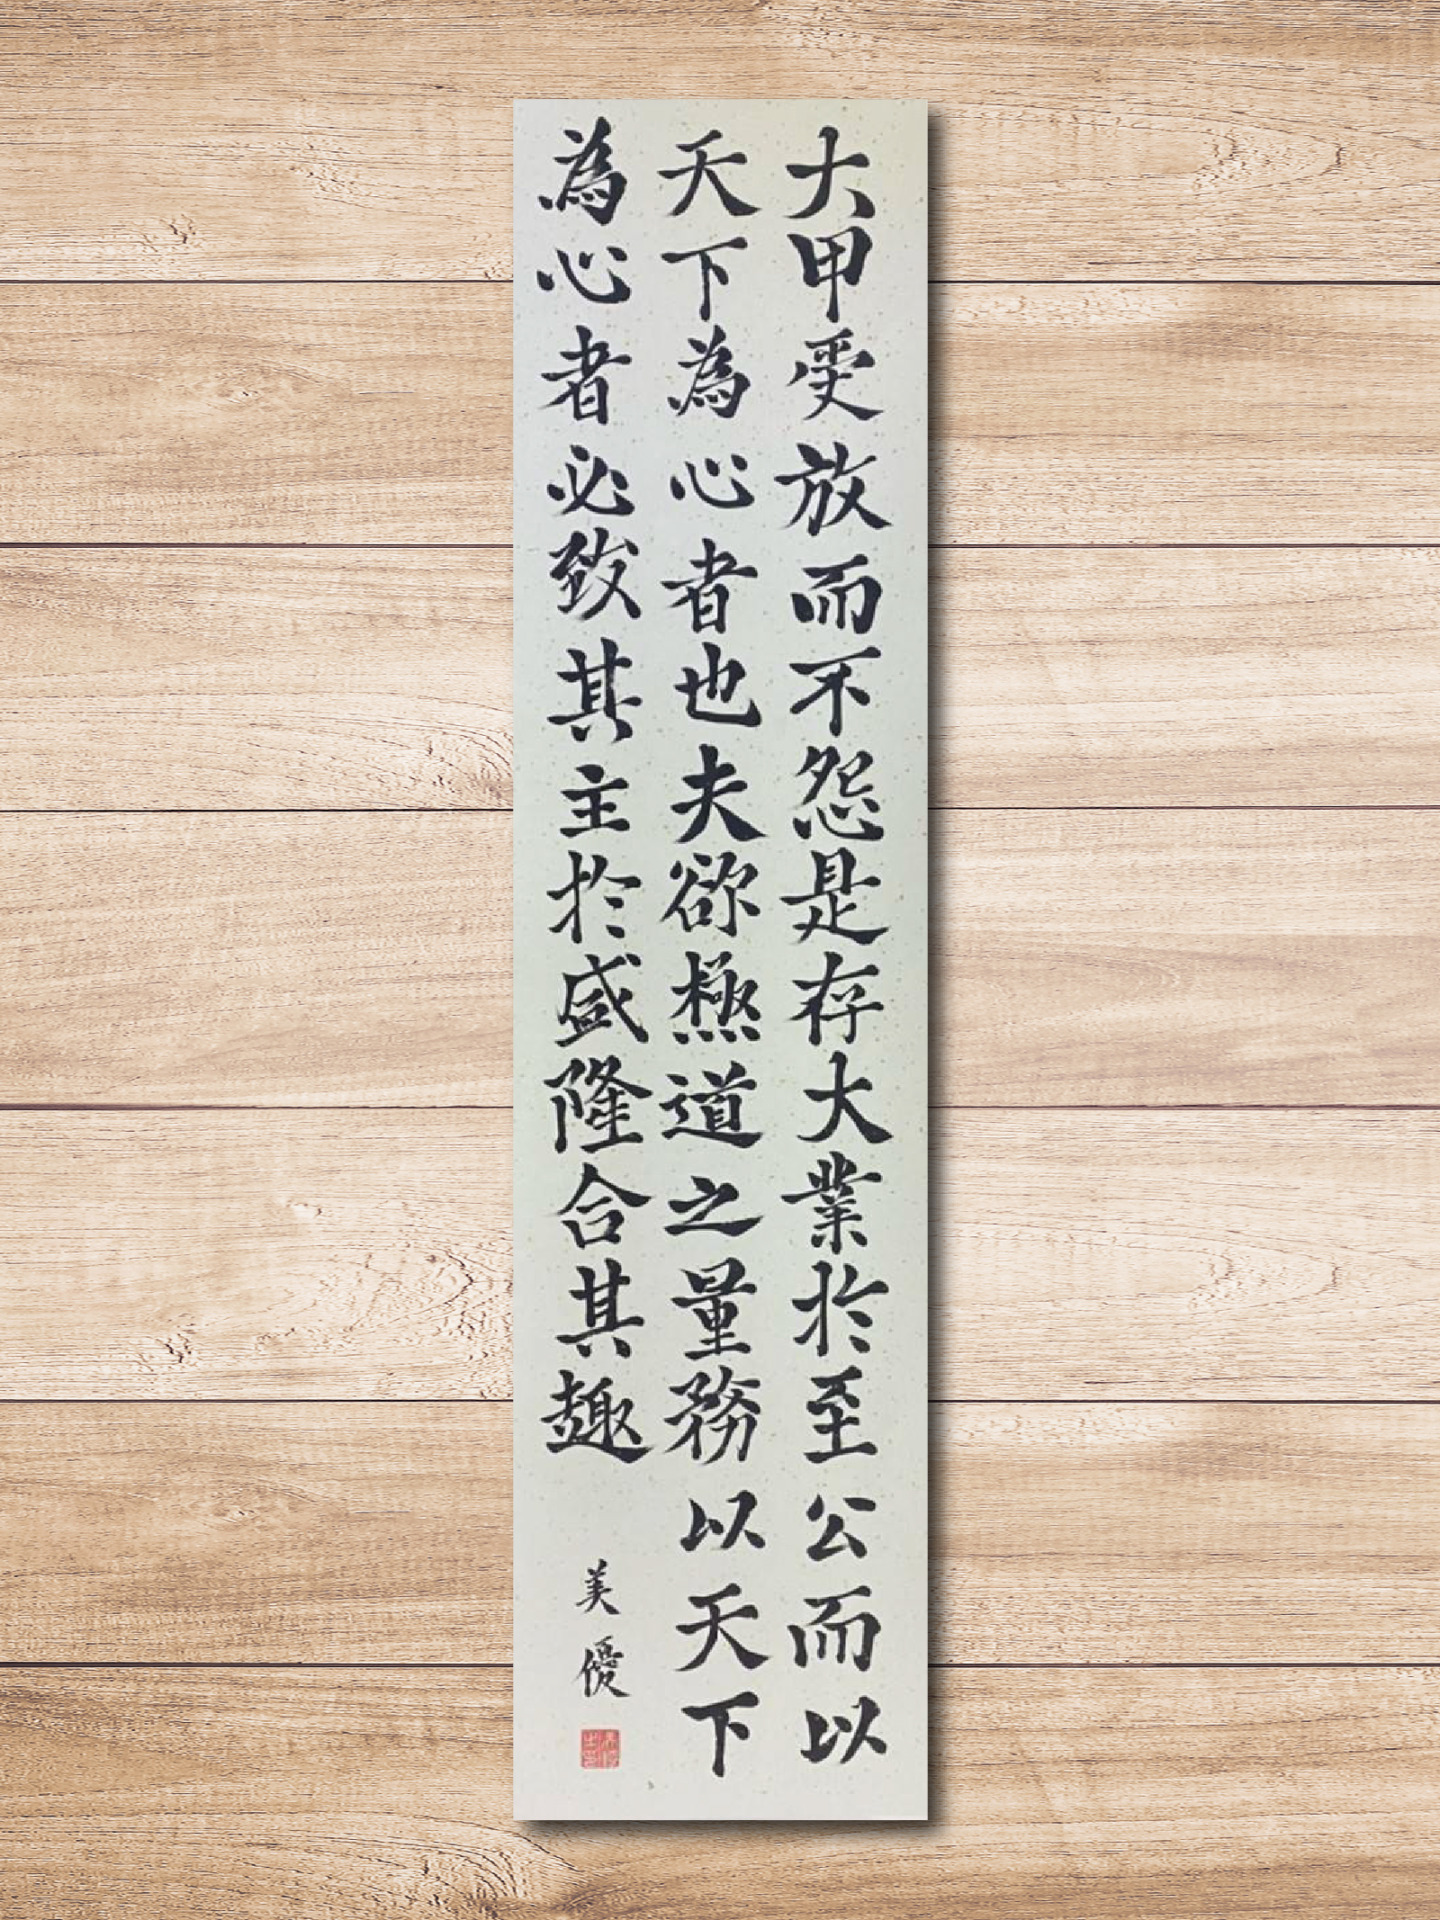 大甲受放而不怨是存大業於至公而以
天下為心者也夫欲極道之量務以天下
為心者必致其主於盛隆合其趣
美優